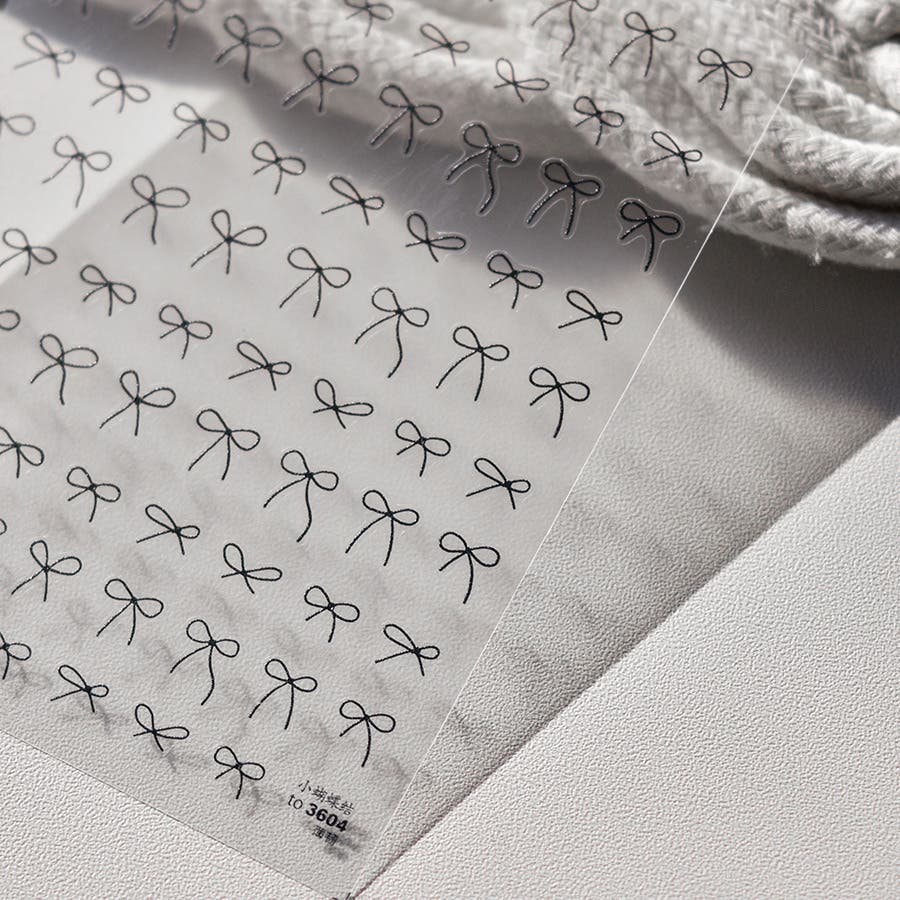 小蝴蝶结
to 3604
薄销